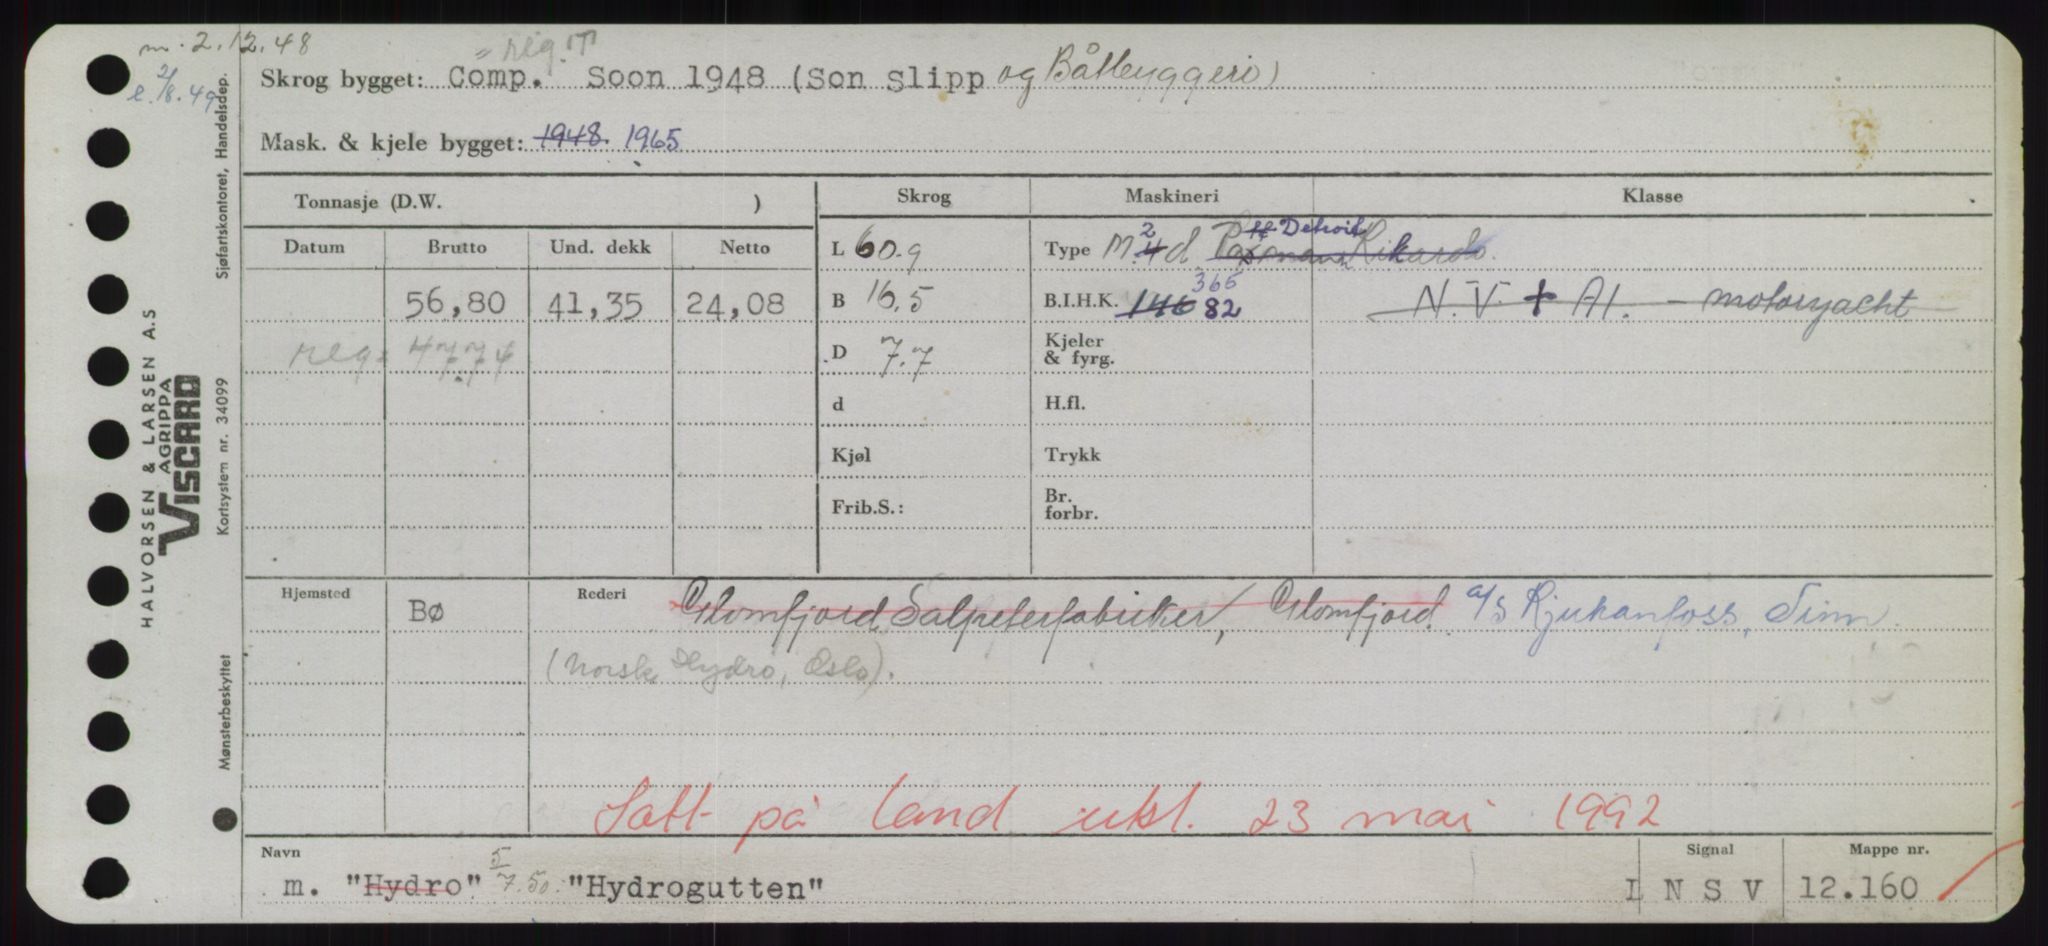 m. 2.12.48
e. 2/8.49
reg.
Skrog bygget: Comp. Soon 1948 (Son Slipp og Båtbyggeri)
Mask. & kjele bygget: 1948. 1965
Tonnasje (D.W. )
Skrog
Maskineri
Klasse
Datum
Brutto
Und. dekk
Netto
L 60.9
Type M 2 4 d Paxmann Rikardo. Detroit
56,80 41,35 24,08
B 16,5
B.I.H.K. 146 82 365
N.V. + A1. - motoryacht
reg. 47.74
D 7.7
Kjeler & fyrg.
d
H.fl.
Kjøl
Trykk
Frib.S.:
Br. forbr.
Hjemsted
BØ
Rederi
Glomfjord Salpeterfabrikker, Glomfjord. a/s Rjukanfoss, Tinn.
(Norsk Hydro, Oslo).
Satt på land utsl. 23 mai 1992
Navn
Signal
Mappe nr.
m. "Hydro" 5/7.50. "Hydrogutten"
L N S V
12.160
HALVORSEN & LARSEN A.S
AGRIPPA
VISCARD
Sjøfartskontoret, Handelsdep.
Kortsystem nr. 34099
Mønsterbeskyttet